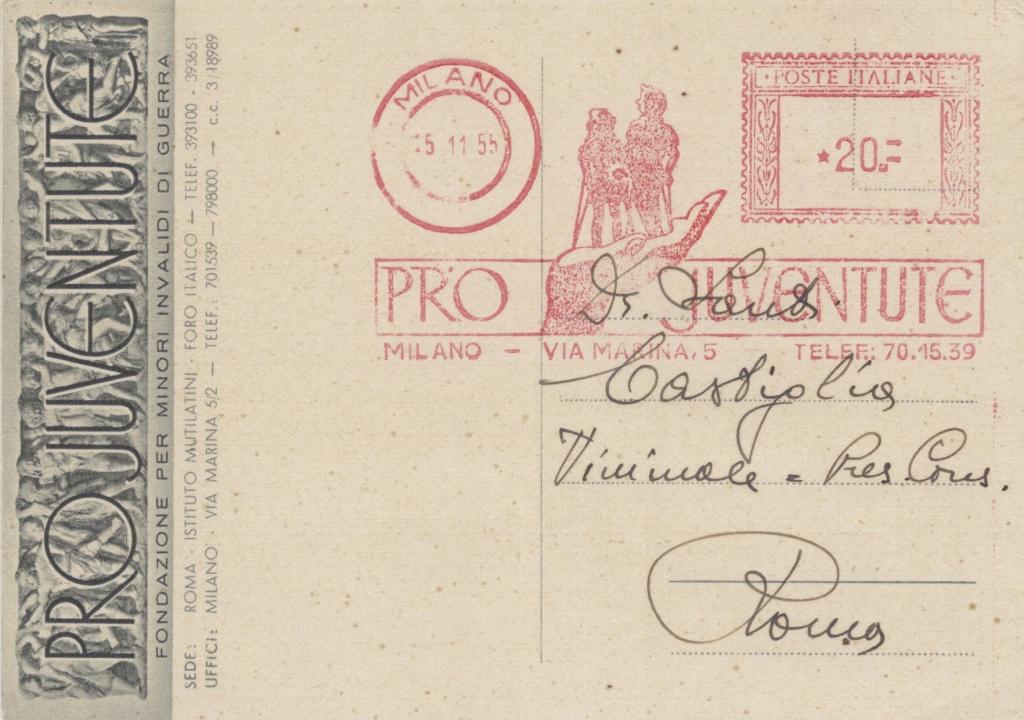 PRO JUVENTUTE
FONDAZIONE PER MINORI INVALIDI DI GUERRA
SEDE: ROMA - ISTITUTO MUTILATINI - FORO ITALICO — TELEF. 393100 - 393651
UFFICI: MILANO - VIA MARINA 5/2 — TELEF.: 701539 — 798000 — c.c. 3/18989
MILANO
15 11 55
POSTE ITALIANE
★20.=
PRO JUVENTUTE
MILANO - VIA MARINA, 5 TELEF.: 70.15.39
Dr.
Castiglia
Viminale = Pres Cons.
Roma